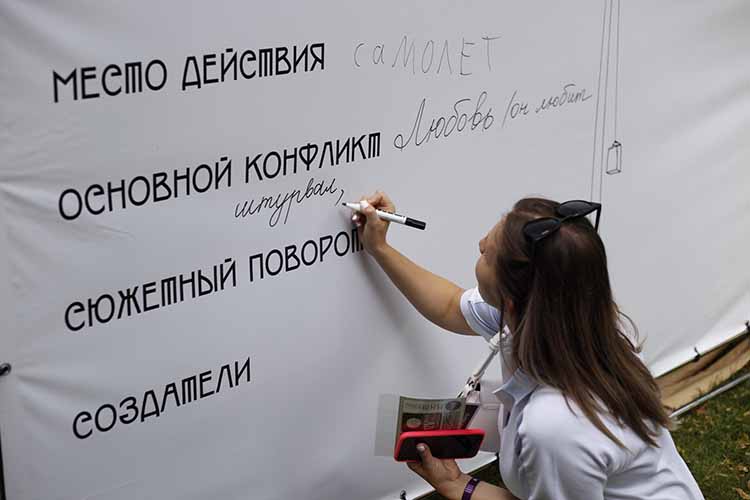 МЕСТО ДЕЙСТВИЯ самолет
ОСНОВНОЙ КОНФЛИКТ Любовь /он любит
штурвал,
СЮЖЕТНЫЙ ПОВОРОТ
СОЗДАТЕЛИ